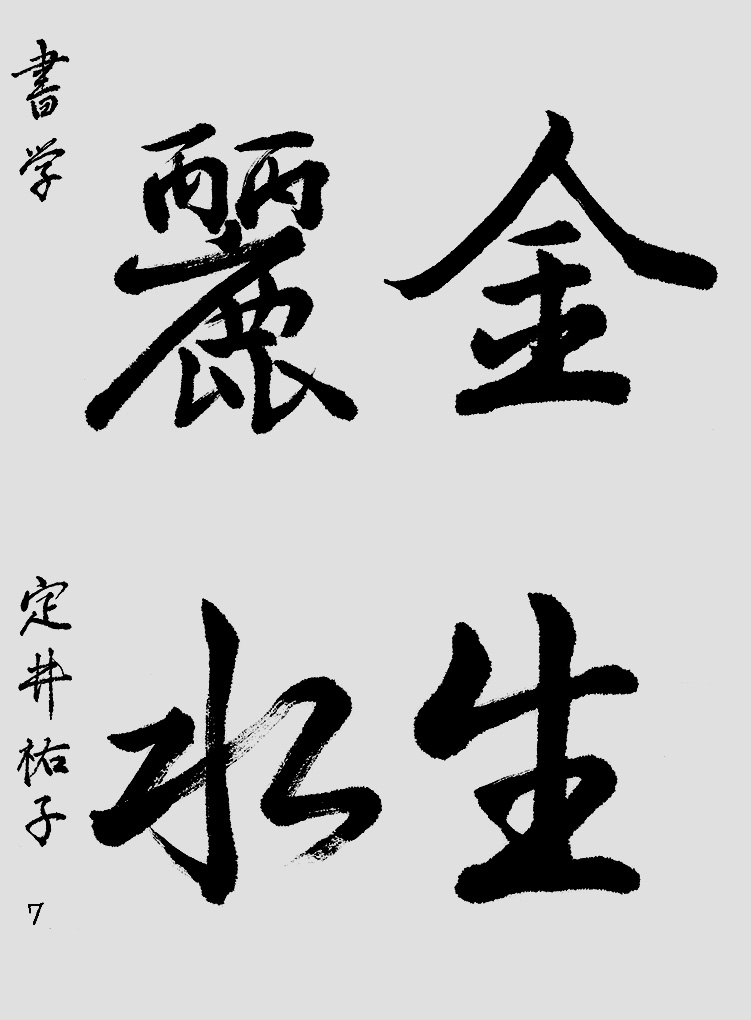 金生
麗水
書学 定井祐子 7